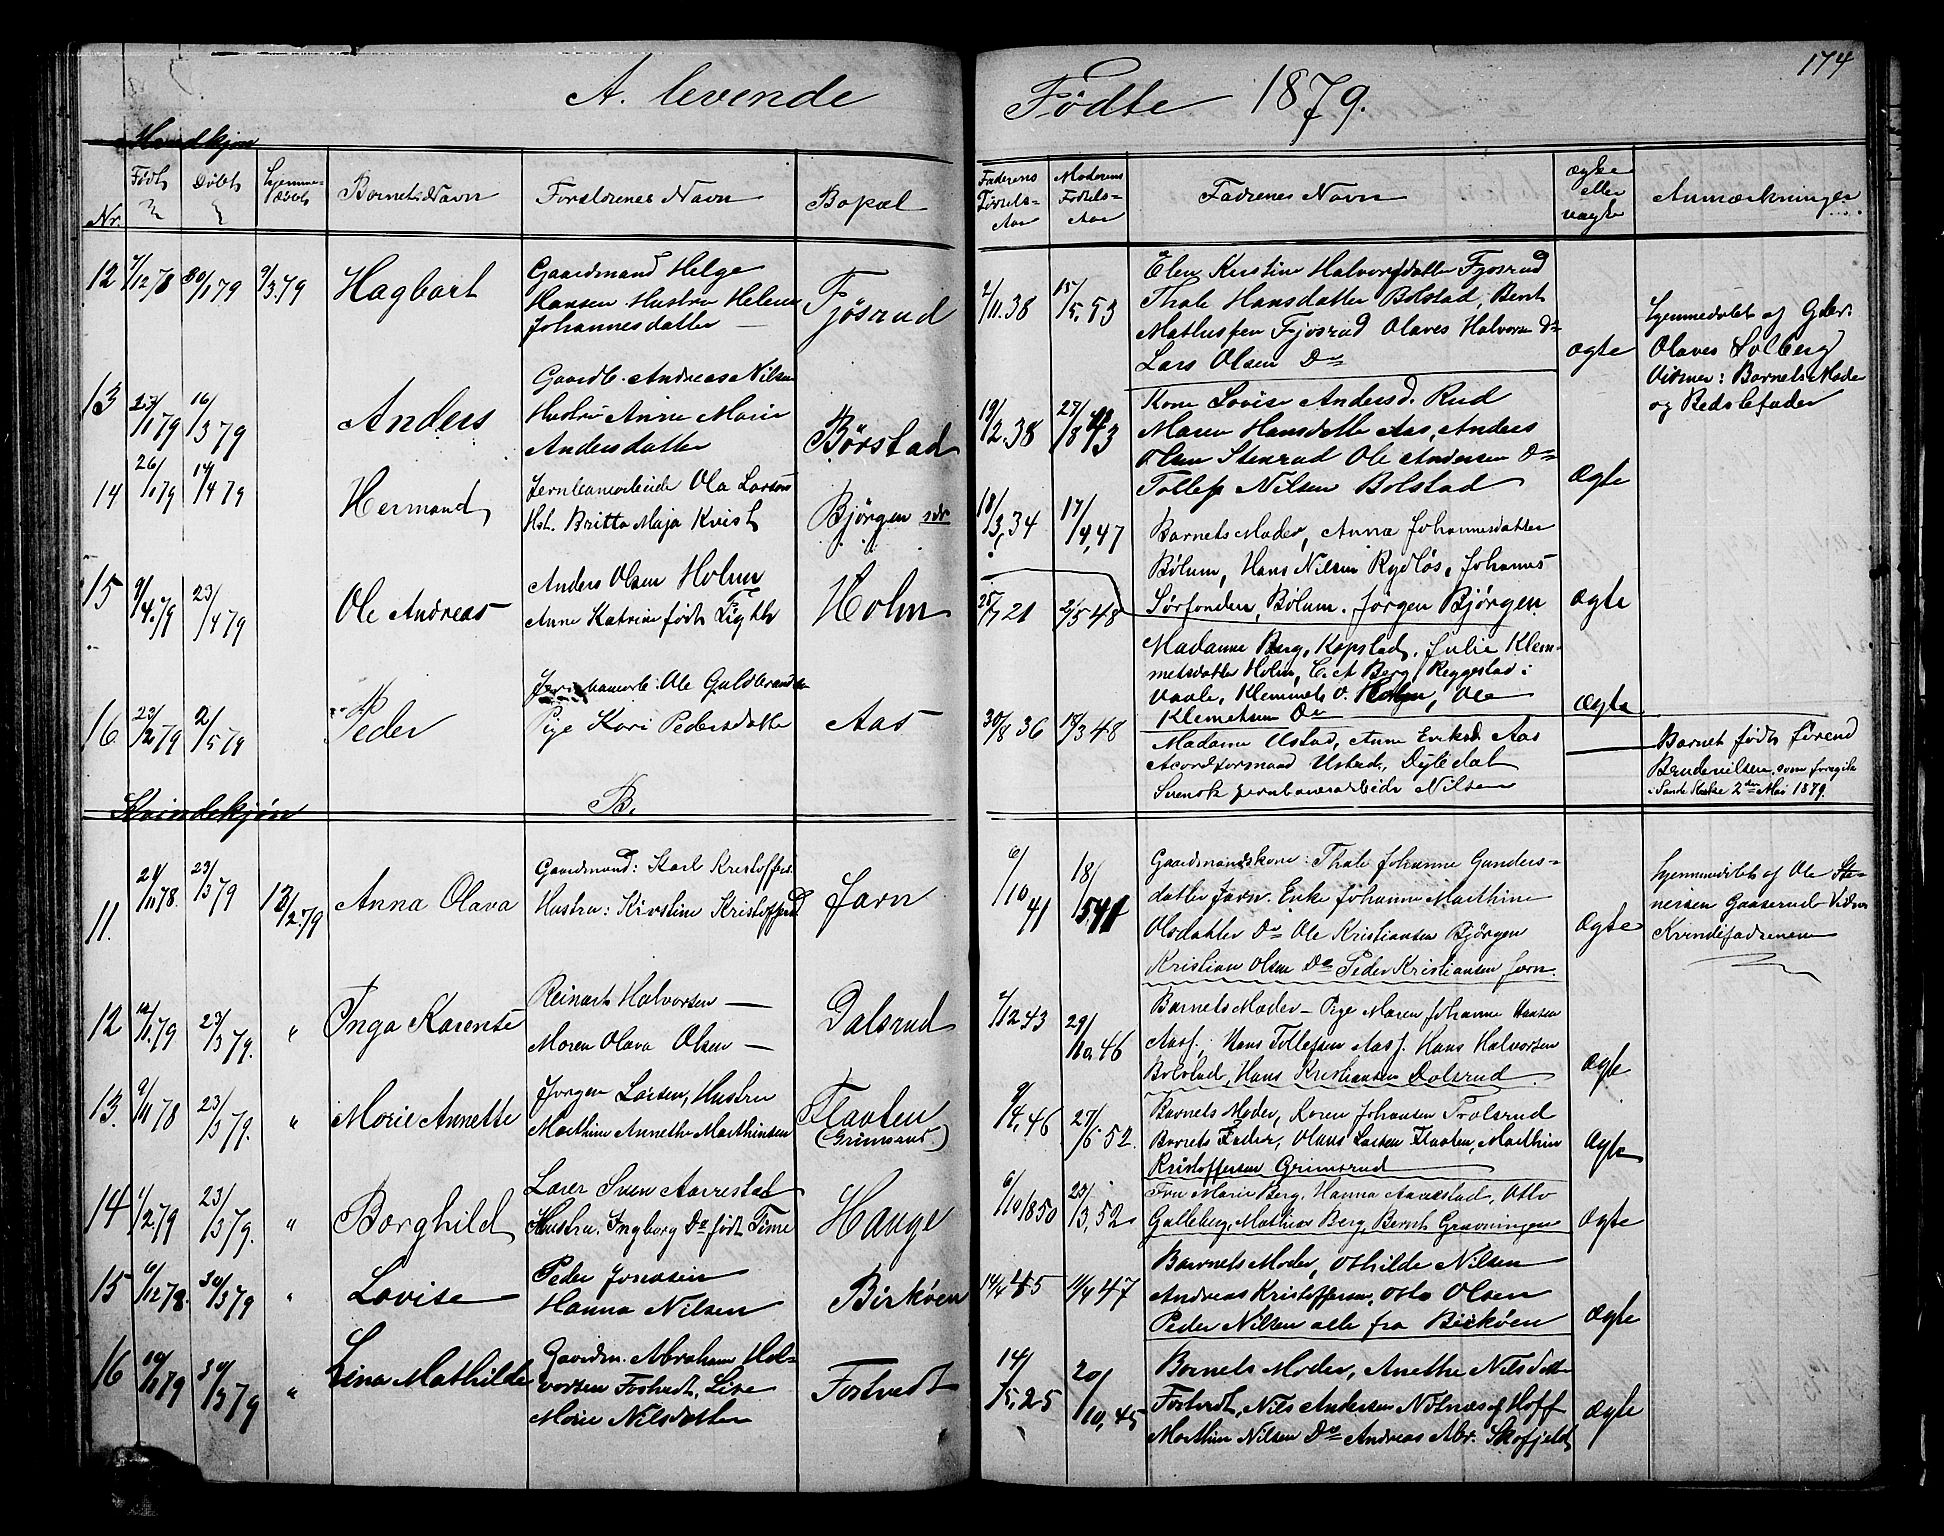 A. levende
Nr.
Født
Døbt
Hjemme-
døbt
Barnets Navn
Forældrenes Navn
Bopæl
12
7/12 78
30/1 79
9/3 79
Hagbart
Gaardmand Helge
Hansen Hustru Helene
Johannesdatter —
Fjøsrud
13
23/1 79
16/3 79
Anders
Gaardb. Andreas Nilsen
Hustru Anne Marie
Andersdatter
Børstad
14
26/1 79
14/4 79
Hermand
Jernbanearbeide Ola Larsen
Hst. Britta Maja Kvist
Bjørgen sdr
15
9/4 79
23/4 79
Ole Andreas
Anders Olsen Holm
Anne Katrine født
Holm
16
23/2 79
2/5 79
Peder
Ole Guldbrandsen
Pige Kari Pedersdatter
Aas
B.
Kvindekjøn
11.
21/11 78.
23/3 79
13/2 79
Anna Olava
Gaardmand: Karl Kristoffers.
Hustru: Kirstine Kristoffersd
Jarn
12
12/1 79
23/3 79.
"
Inga Karense
Reinart Halvorsen —
Maren Olava Olsen —
Dalsrud
13.
9/11 78
23/3 79.
"
Marie Annette
Jørgen Larsen, Hustru
Marthine Annethe Marthinsen
Flaaten
(Grimsrud)
14
1/2 79
23/3 79.
"
Borghild
Lærer Sven Aarrestad
Hustru Ingborg Do født Time
Hauge
15
6/12 78.
30/3 79
"
Lovise
Peder Jonasen
Hanna Nilsen
Birkøen
16
10/1 79
30/3 79
"
Lina Mathilde
Gaardm. Abraham Hal-
vorsen Fostvedt, Lise
Marie Nilsdatter
Fostvedt
174
Fødte 1879.
Faderens
Fødsels-
Aar
Moderens
Fødsels-
Aar
Faddrenes Navn
ægte
eller
uægte
Anmærkninger
2/11. 38
15/5. 53
Elen Kirstine Halvorsdatter Fjøsrud
Thale Hansdatter Bolstad, Bernt
Mathissen Fjøsrud Olaves Halvorsen Do
Lars Olsen Do
ægte
Hjemmedøbt af Gdbr.
Olaves Solberg
Vidner: Barnets Moder
og Bedstefader
19/2. 38
27/8 43
Kone Lovise Andersd. Rud
Maren Hansdatter Aas, Anders
Olsen Stenrud Ole Andersen Do
Tollef Nilsen Bolstad
ægte
18/3, 34
17/4, 47
Barnets Moder, Anna Johannesdatter
Bølum, Hans Nilsen Rydløs, Johannes
Sørfonden, Bølum. Jørgen Bjørgen
ægte
25/7 21
2/5 48
Madamme Berg, Kopstad, Julie Klem-
metsdatter Holm, C. A Berg Reggestad i
Vaale, Klemmet O. Holm, Ole
Klemetsen Do
ægte
30/8 36
18/3 48
Madame Ustad, Anne Eriksd. Aas
Acordformand Ustad, Dyledal
Svensk jernbanearbeider Nilsen
—
Barnet født førend
Brudevielsen, som foregik
i Sande Kirke 2den Mai 1879.
6/10 41
18/5 41
Gaardmandskone: Thale Johanne Gunders-
datter Jarn. Enke Johanne Marthine
Olsdatter Do Ole Kristiansen Bjørgen
Kristian Olsen Do Peder Kristiansen Jarn.
ægte
Hjemmedøbt af Ole Ste-
nersen Gaaserud Vidner
Kvindefadrenerne
7/12 43
29/10, 46
Barnets Moder — Pige Maren Johanne Hansen
Aasf, Hans Tollefsen Aasf. Hans Halvorsen
Bolstad, Hans Kristiansen Dalsrud.
ægte
9/4, 46
27/5 52.
Barnets Moder, Karen Johansen Trolsrud
Barnets Fader, Olaus Larsen Flaaten, Marthin
Kristoffersen Grimsrud
ægte
6/10 1850
23/3, 52
Fru Marie Berg, Hanna Aarestad, Otto
Galleberg, Mathias Berg, Bernt Gravningen
ægte
14/4 45
11/4 47
Barnets Moder, Othilde Nilsen
Andreas Kristoffersen, Otto Olsen
Peder Nilsen alle fra Birkøen
ægte
14/5, 25
20/10, 45
Barnets Moder, Anethe Nilsdatter
Fostvedt, Nils Andersen Nøtnæs af Hoff
Marthin Nilsen Do Andreas Abr. Skafjeld
ægte